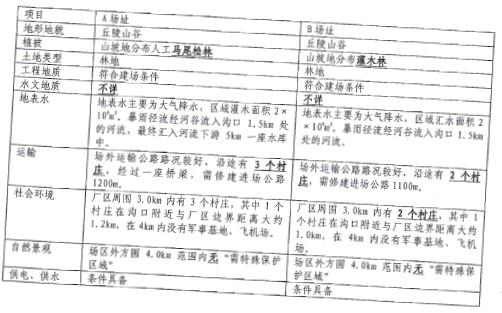 项目 A场址 B场址
地形地貌 丘陵山谷 丘陵山谷
植被 山坡地分布人工马尾松林 山坡地分布灌木林
土地类型 林地 林地
工程地质 符合建场条件 符合建场条件
水文地质 不详 不详
地表水 地表水主要为大气降水，区域灌木面积2×
10⁶m²，暴雨径流经河谷流入沟口 1.5km 处
的河流，最终汇入河流下游 5km 一座水库
中。
地表水主要为大气降水，区域汇水面积 2×
10⁶m²，暴雨径流经河谷流入沟口 1.5km
处的河流。
运输 场外运输公路路况较好，沿途有 3 个村
庄，经过一座桥梁，需修建进场公路
1200m。
场外运输公路路况较好，沿途有 2 个村
庄，需修建进场公路 1100m。
社会环境 厂区周围 3.0km 内有 3 个村庄，其中 1 个
村庄在沟口附近与厂区边界距离大约
1.2km，在 4km 内没有军事基地、飞机场。
厂区周围 3.0km 内有 2 个村庄，其中 1
个村庄在沟口附近与厂区边界距离大约
1.0km，在 4km 内没有军事基地、飞机
场。
自然景观 场区外方圆 4.0km 范围内无“需特殊保护
区域”
场区外方圆 4.0km 范围内无“需特殊保
护区域”
供电、供水 条件具备 条件具备